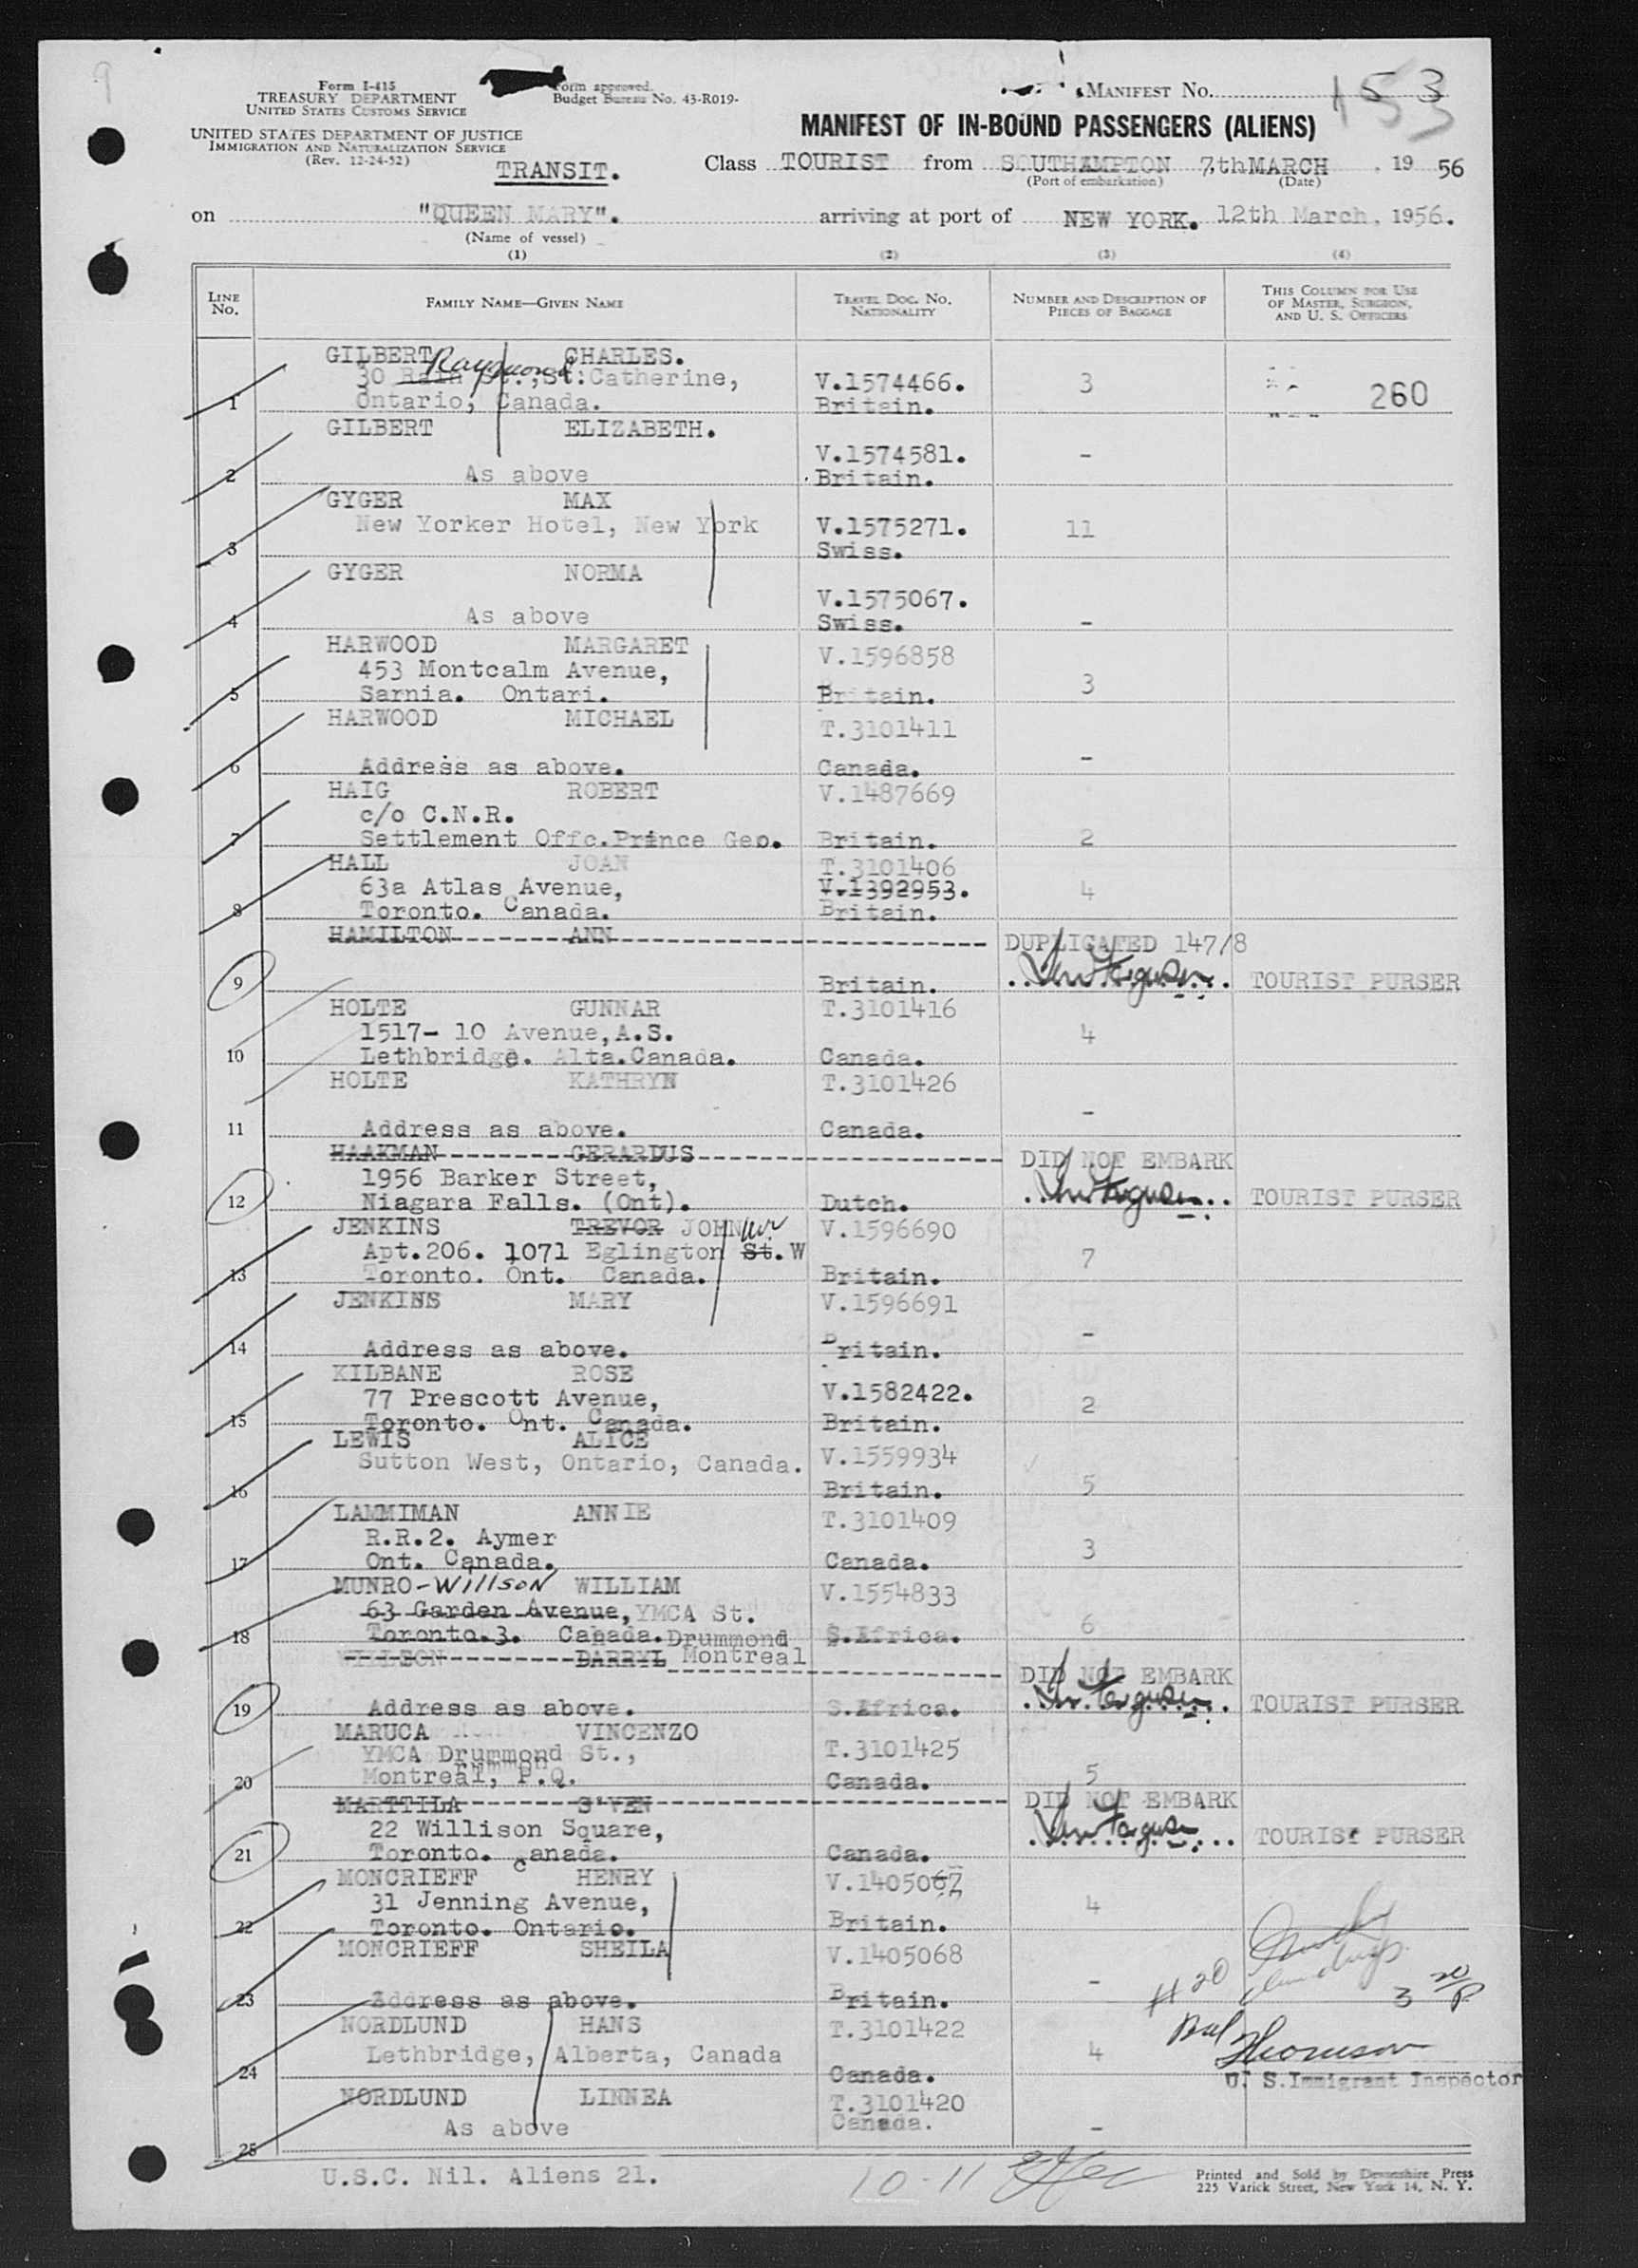 9
Form I-415
TREASURY DEPARTMENT
UNITED STATES CUSTOMS SERVICE
UNITED STATES DEPARTMENT OF JUSTICE
IMMIGRATION AND NATURALIZATION SERVICE
(Rev. 12-24-52)
TRANSIT.
Form approved.
Budget Bureau No. 43-R019-
MANIFEST No. 153
MANIFEST OF IN-BOUND PASSENGERS (ALIENS)
Class TOURIST from SOUTHAMPTON 7thMARCH, 1956
(Port of embarkation) (Date)
on "QUEEN MARY". arriving at port of NEW YORK. 12th March, 1956.
(Name of vessel)
(1) (2) (3) (4)
LINE No. FAMILY NAME—GIVEN NAME TRAVEL DOC. No. NATIONALITY NUMBER AND DESCRIPTION OF PIECES OF BAGGAGE THIS COLUMN FOR USE OF MASTER, SURGEON, AND U. S. OFFICERS
GILBERT CHARLES.
30 Raymond St.,St:Catherine, V.1574466. 3 260
1 Ontario, Canada. Britain.
GILBERT ELIZABETH.
V.1574581. -
2 As above Britain.
GYGER MAX
New Yorker Hotel, New York V.1575271. 11
3 Swiss.
GYGER NORMA
V.1575067.
4 As above Swiss. -
HARWOOD MARGARET V.1596858
453 Montcalm Avenue, 3
5 Sarnia. Ontari. Britain.
HARWOOD MICHAEL T.3101411
-
6 Address as above. Canada.
HAIG ROBERT V.1487669
c/o C.N.R.
7 Settlement Offc.Prince Geo. Britain. 2
HALL JOAN T.3101406
63a Atlas Avenue, V.1392953. 4
8 Toronto. Canada. Britain.
HAMILTON ANN DUPLICATED 147/8
9 Britain. TOURIST PURSER
HOLTE GUNNAR T.3101416
1517- 10 Avenue,A.S. 4
10 Lethbridge. Alta.Canada. Canada.
HOLTE KATHRYN T.3101426
-
11 Address as above. Canada.
HAAKMAN GERARDUS DID NOT EMBARK
1956 Barker Street,
12 Niagara Falls. (Ont). Dutch. TOURIST PURSER
JENKINS TREVOR JOHN V.1596690
Apt.206. 1071 Eglington St.W 7
13 Toronto. Ont. Canada. Britain.
JENKINS MARY V.1596691
-
14 Address as above. Britain.
KILBANE ROSE
77 Prescott Avenue, V.1582422. 2
15 Toronto. Ont. Canada. Britain.
LEWIS ALICE
Sutton West, Ontario, Canada. V.1559934
16 Britain. 5
LAMMIMAN ANNIE T.3101409
R.R.2. Aymer 3
17 Ont. Canada. Canada.
MUNRO-Willson WILLIAM V.1554833
63 Garden Avenue, YMCA St. 6
18 Toronto.3. Canada. Drummond S.Africa.
WILLSON DARRYL Montreal DID NOT EMBARK
19 Address as above. S.Africa. TOURIST PURSER
MARUCA VINCENZO
YMCA Drummond St., T.3101425
20 Montreal, P.Q. Canada. 5
MARTTILA S'VEN DID NOT EMBARK
22 Willison Square,
21 Toronto. Canada. Canada. TOURIST PURSER
MONCRIEFF HENRY V.1405067
31 Jenning Avenue, 4
22 Toronto. Ontario. Britain.
MONCRIEFF SHEILA V.1405068
-
23 Address as above. Britain. # 20
NORDLUND HANS T.3101422
Lethbridge, Alberta, Canada 4 Thomson
24 Canada. U. S.Immigrant Inspector
NORDLUND LINNEA T.3101420
As above Canada. -
25
U.S.C. Nil. Aliens 21. 10-11
Printed and Sold by Devonshire Press
225 Varick Street, New York 14, N. Y.